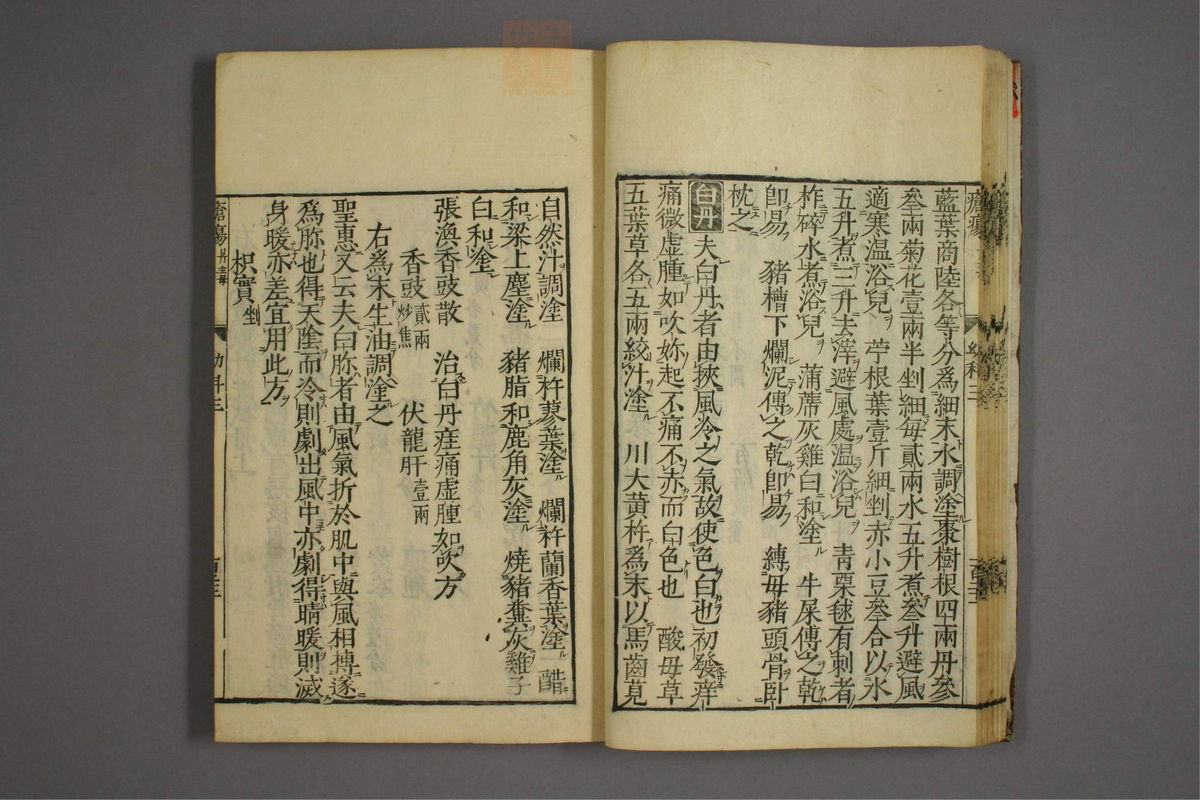 藍葉商陸各等分爲細末水調塗棗樹根四兩丹參
叄兩菊花壹兩半剉細每貳兩水五升煮叄升避風
適寒温浴兒 苧根葉壹斤細剉赤小豆叄合以水
五升煮三升去滓避風處温浴兒 青栗毬有刺者
柞碎水煮浴兒 蒲蓆灰雞白和塗 牛屎傅之乾
即易 豬槽下爛泥傅之乾即易 縛母豬頭骨卧
枕之
白丹 夫白丹者由挾風冷之氣故使色白也初發痒
痛微虚腫如吹妳起不痛不赤而白色也 酸母草
五葉草各五兩絞汁塗 川大黄杵爲末以馬齒莧
幼科三
自然汁調塗 爛杵蓼葉塗 爛杵蘭香葉塗 醋
和梁上塵塗 豬脂和鹿角灰塗 燒豬糞灰雞子
白和塗
張渙香豉散 治白丹痓痛虚腫如吹方
香豉貳兩炒焦 伏龍肝壹兩
右爲末生油調塗之
聖惠又云夫白胗者由風氣折於肌中與風相搏遂
爲胗也得天陰而冷則劇出風中亦劇得晴暖則滅
身暖亦差宜用此方
枳實
幼科三